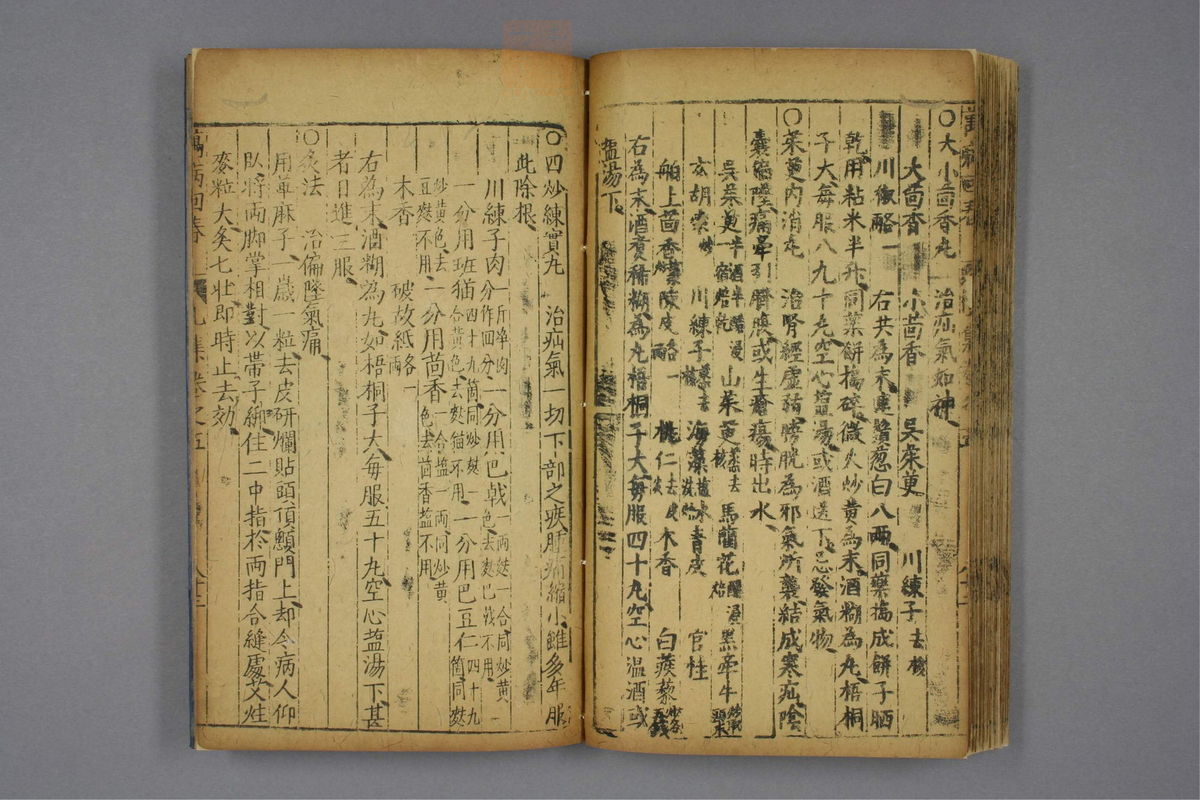 〇大小茴香丸 治疝氣如神
大茴香 小茴香 吳茱萸 川練子去核
川椒各一 右共為末連鬚葱白八兩同藥搗成餅子晒
乾用粘米半升同藥餅搗碎微火炒黃為末酒糊為丸梧桐
子大每服八九十丸空心塩湯或酒送下忌發氣物
〇茱萸內消丸 治腎經虛弱膀胱為邪氣所襲結成寒疝陰
囊偏墜痛牽引臍腹或生瘡瘍時出水
吳茱萸半酒半醋浸一宿焙乾 山茱萸蒸去核 馬藺花醋浸焙 黑牽牛炒取頭末
玄胡索炒 川練子蒸去核 海藻 青皮 官桂
舶上茴香炒 陳皮各一兩 桃仁去皮 木香 白蒺藜炒各五錢
右為末酒煮稀糊為丸梧桐子大每服四十丸空心溫酒或
塩湯下
〇四炒練實丸 治疝氣一切下部之疾腫痛縮小雖多年服
此除根
川練子肉一斤淨肉分作四分 一分用巴戟一兩麩一合同炒黃色去麩巴戟不用
一分用斑猫四十九箇同炒麩一合黃色去麩猫不用 一分用巴豆仁四十九箇同麩
炒黃色去豆麩不用 一分用茴香一合塩一兩同炒黃色去茴香塩不用
木香 破故紙各一兩
右為末酒糊為丸如梧桐子大每服五十丸空心塩湯下甚
者日進三服
〇灸法 治偏墜氣痛
用萆麻子一歲一粒去皮研爛貼頭頂顖門上却令病人仰
臥將兩脚掌相對以帶子綁住二中指於兩指合縫處艾炷
麥粒大灸七壯即時止去効
萬病回春 卷之五